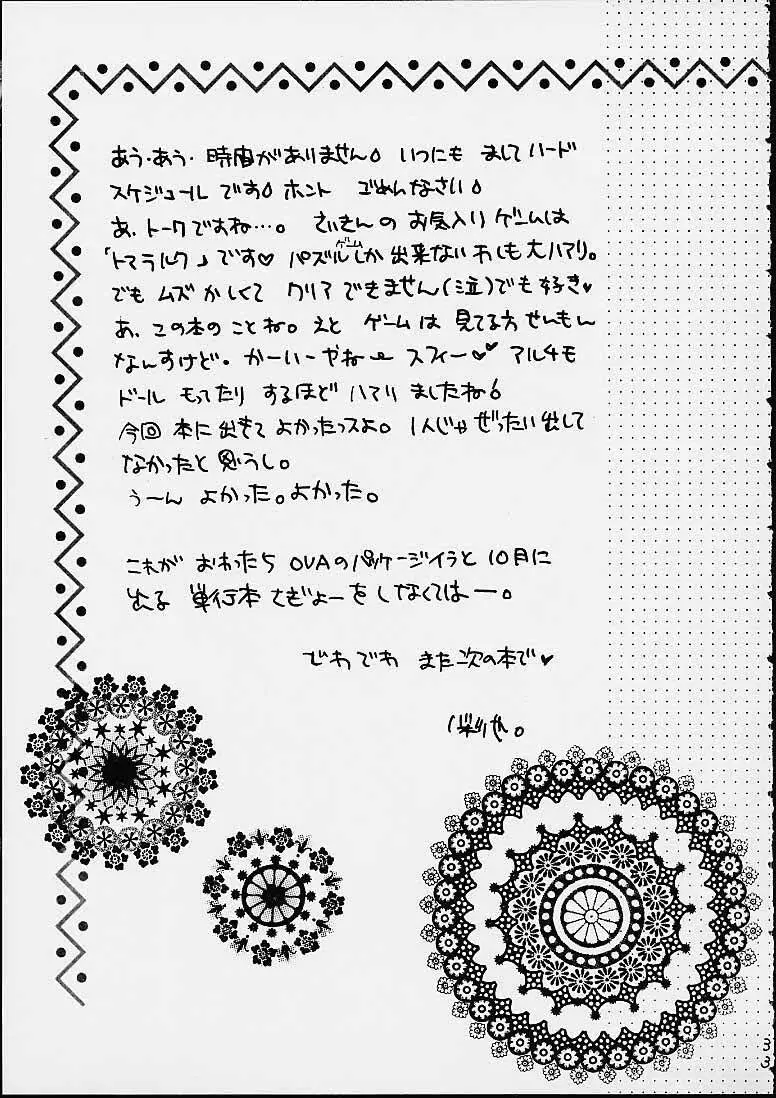 あう・あう・時間がありません。いつにも ましてハード
スケジュール です。ホント ゴめんなさい。
あ、トークですね…。さいきんの お気入り ゲームは
「トマラルク」です♡ パズルゲームしか 出来ない わしも 大ハマリ。
でも ムズかしくて クリア できません(泣)でも 好き♥
あ、この本の ことね。えと ゲームは 見てる方 せんもん
なんすけど。かーいーやねー スフィー♥♥ アルチモ
ドール もってたり するほど ハマり ましたね。
今回 本に出せて よかったっスよ。1人じゃ ぜったい出して
なかったと 思うし。
うーん よかった。よかった。
これが おわったら OVAのパッケージイラと 10月に
出る 単行本 さぎょーを しなくてはー。
でわでわ また次の本で♥
33